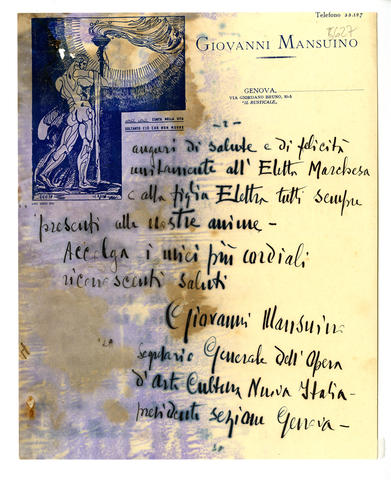 Telefono 53.147
8627
GIOVANNI MANSUINO
GENOVA,
VIA GIORDANO BRUNO,
"IL RUSTICALE,
CONTA NELLA VITA
SOLTANTO CIÒ CHE NON MUORE
-2-
auguri di salute e di felicità
unitamente all'Eletta Marchesa
e alla figlia Elettra tutti sempre
presenti alle nostre anime -
Accolga i miei più cordiali
riconoscenti saluti
Giovanni Mansuino
Segretario Generale dell'Opera
d'Arte Cultura Nuova Italia -
presidente sezione Genova -